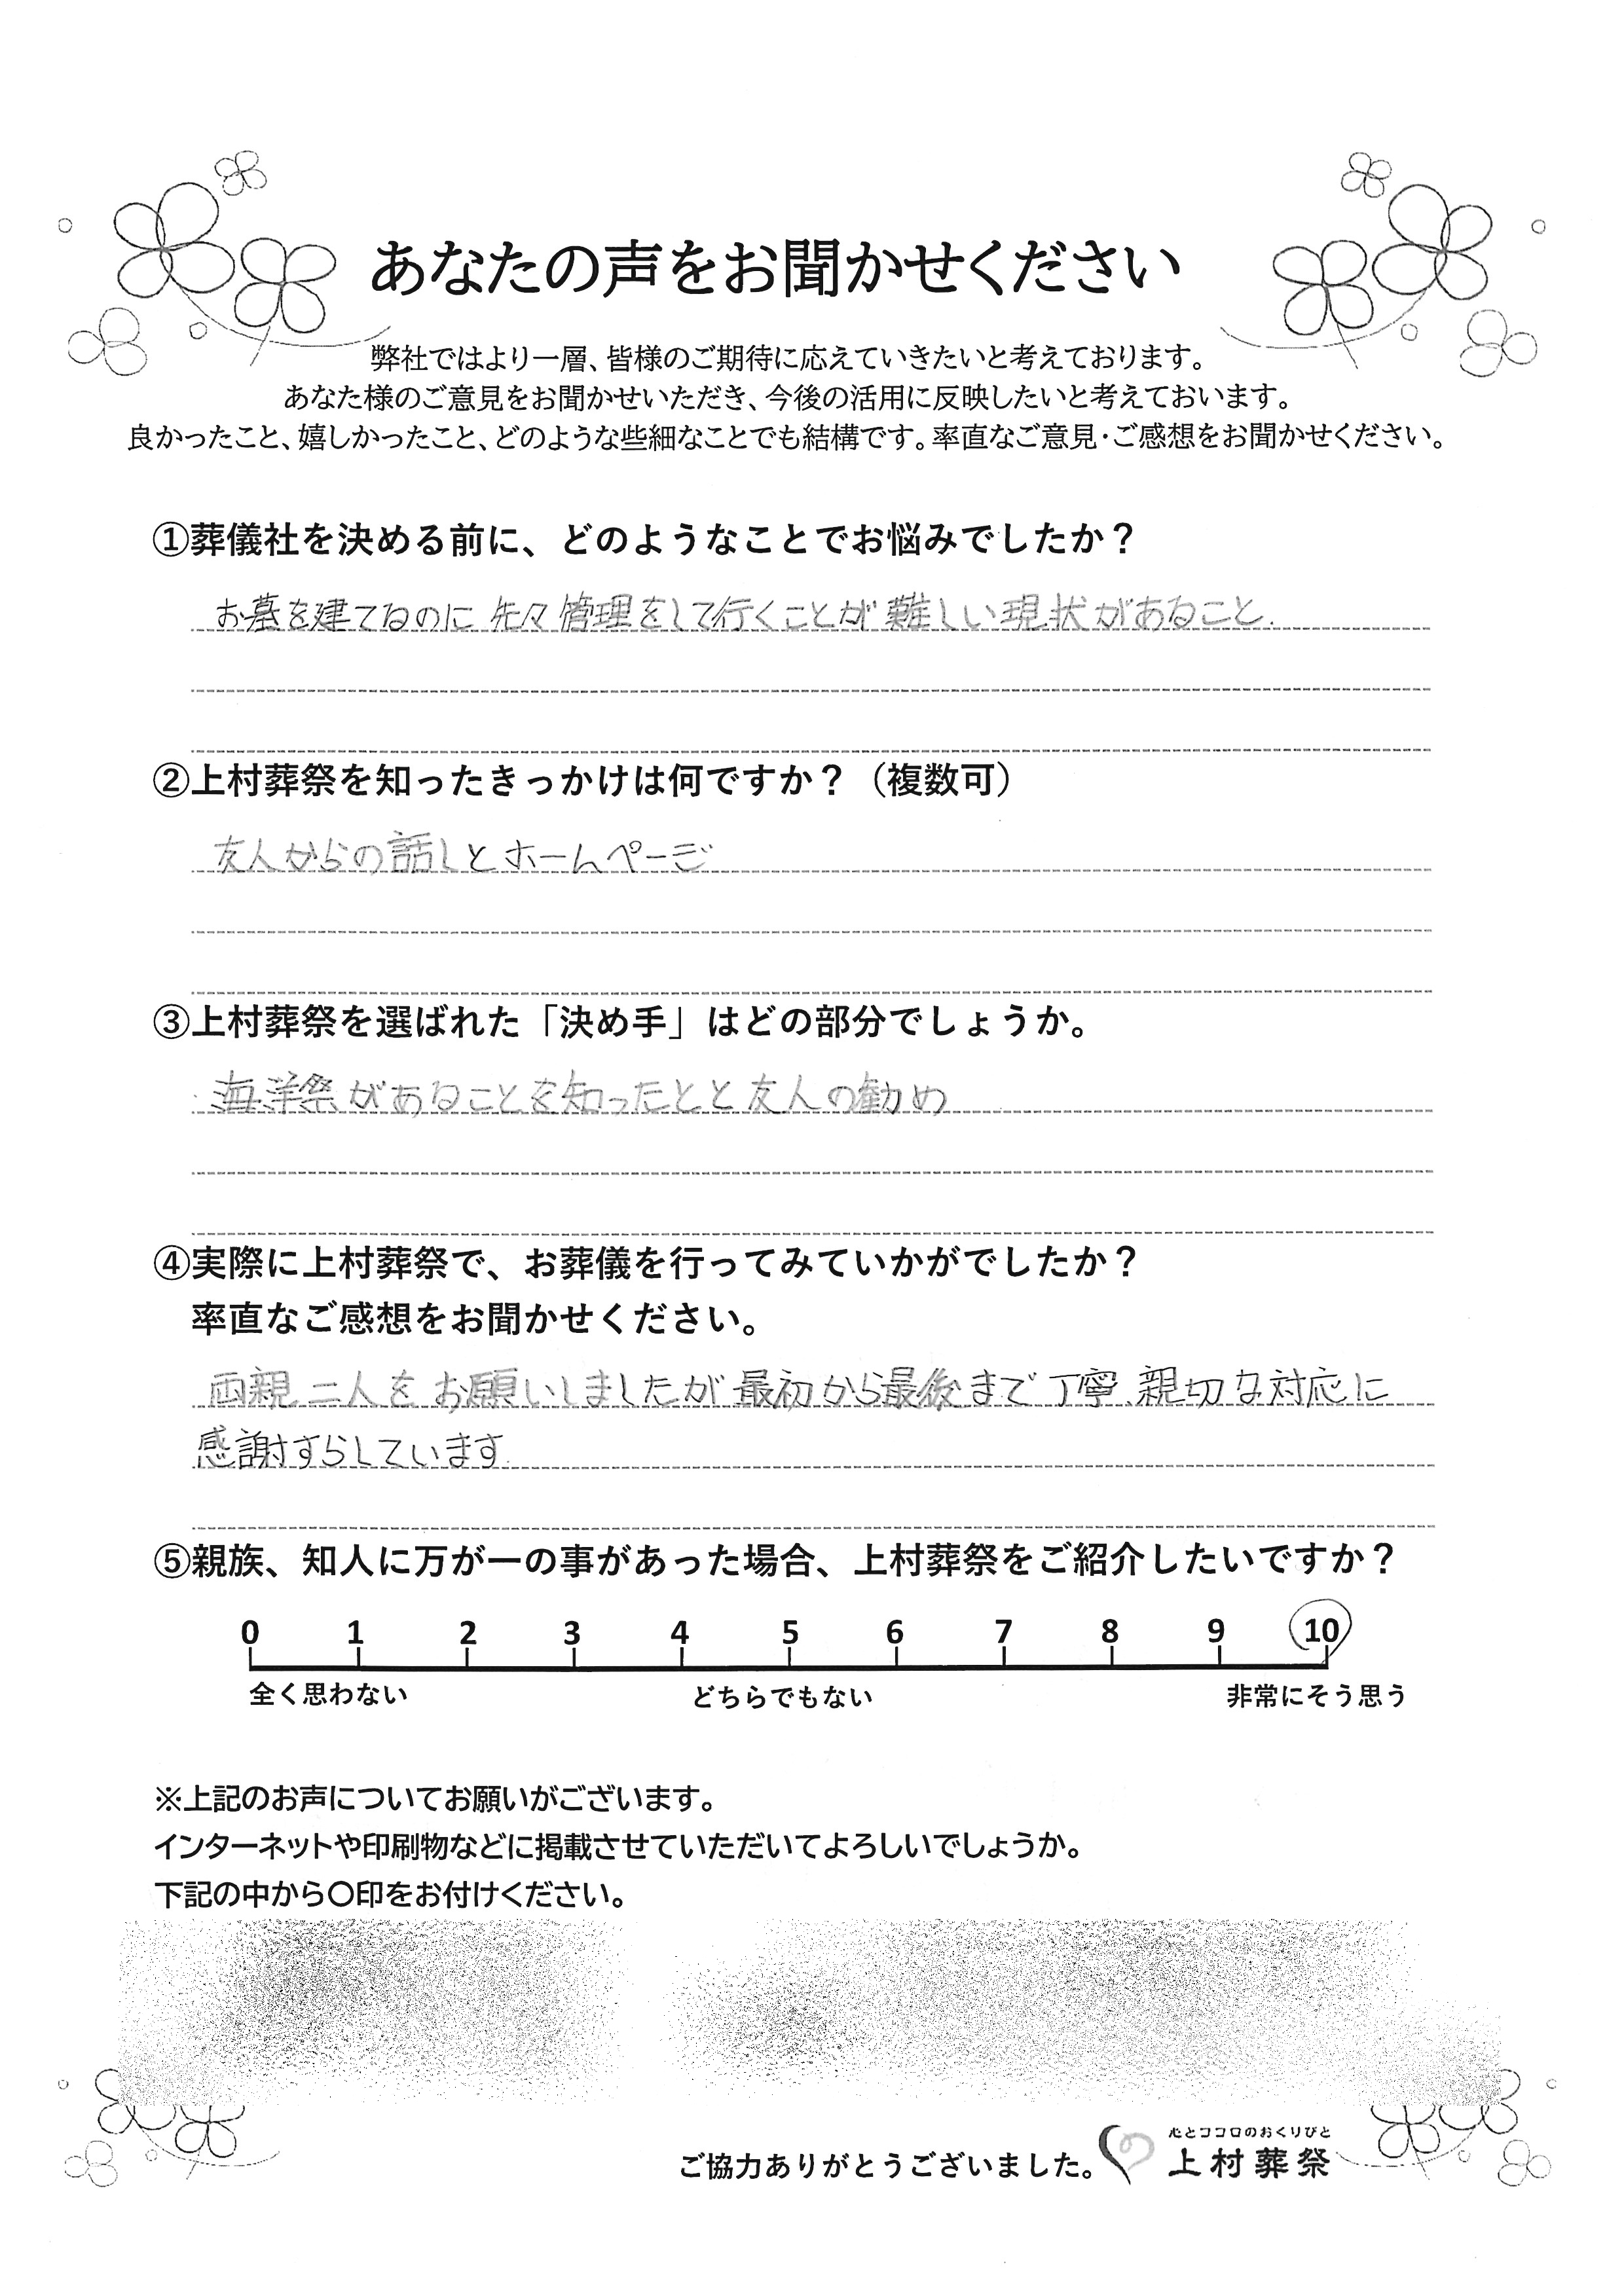 あなたの声をお聞かせください
弊社ではより一層、皆様のご期待に応えていきたいと考えております。
あなた様のご意見をお聞かせいただき、今後の活用に反映したいと考えておいます。
良かったこと、嬉しかったこと、どのような些細なことでも結構です。率直なご意見・ご感想をお聞かせください。
①葬儀社を決める前に、どのようなことでお悩みでしたか？
お墓を建てるのに先々管理をして行くことが難しい現状があること.
②上村葬祭を知ったきっかけは何ですか？（複数可）
友人からの話しとホームページ
③上村葬祭を選ばれた「決め手」はどの部分でしょうか。
海洋祭があることを知ったとと友人の勧め
④実際に上村葬祭で、お葬儀を行ってみていかがでしたか？
率直なご感想をお聞かせください。
両親二人をお願いしましたが最初から最後まで丁寧、親切な対応に
感謝すらしています
⑤親族、知人に万が一の事があった場合、上村葬祭をご紹介したいですか？
0 1 2 3 4 5 6 7 8 9 10
全く思わない どちらでもない 非常にそう思う
※上記のお声についてお願いがございます。
インターネットや印刷物などに掲載させていただいてよろしいでしょうか。
下記の中から〇印をお付けください。
心とココロのおくりびと
ご協力ありがとうございました。 上村葬祭